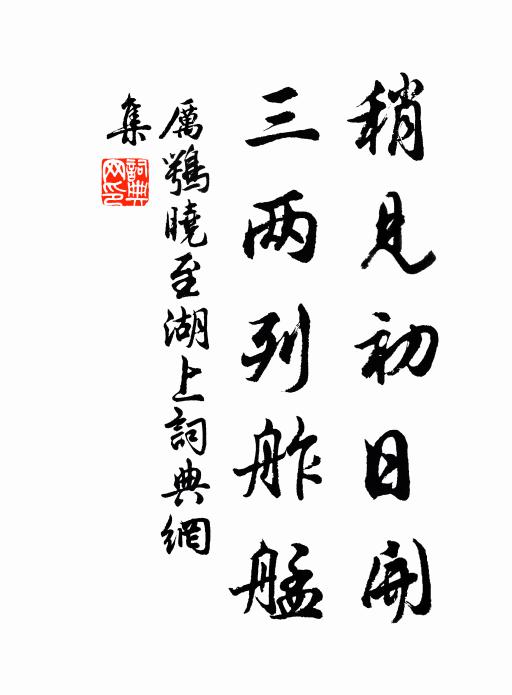 稍見初日開
三两列舴艋
厲鶚曉至湖上詞典網
集
詞典
网印